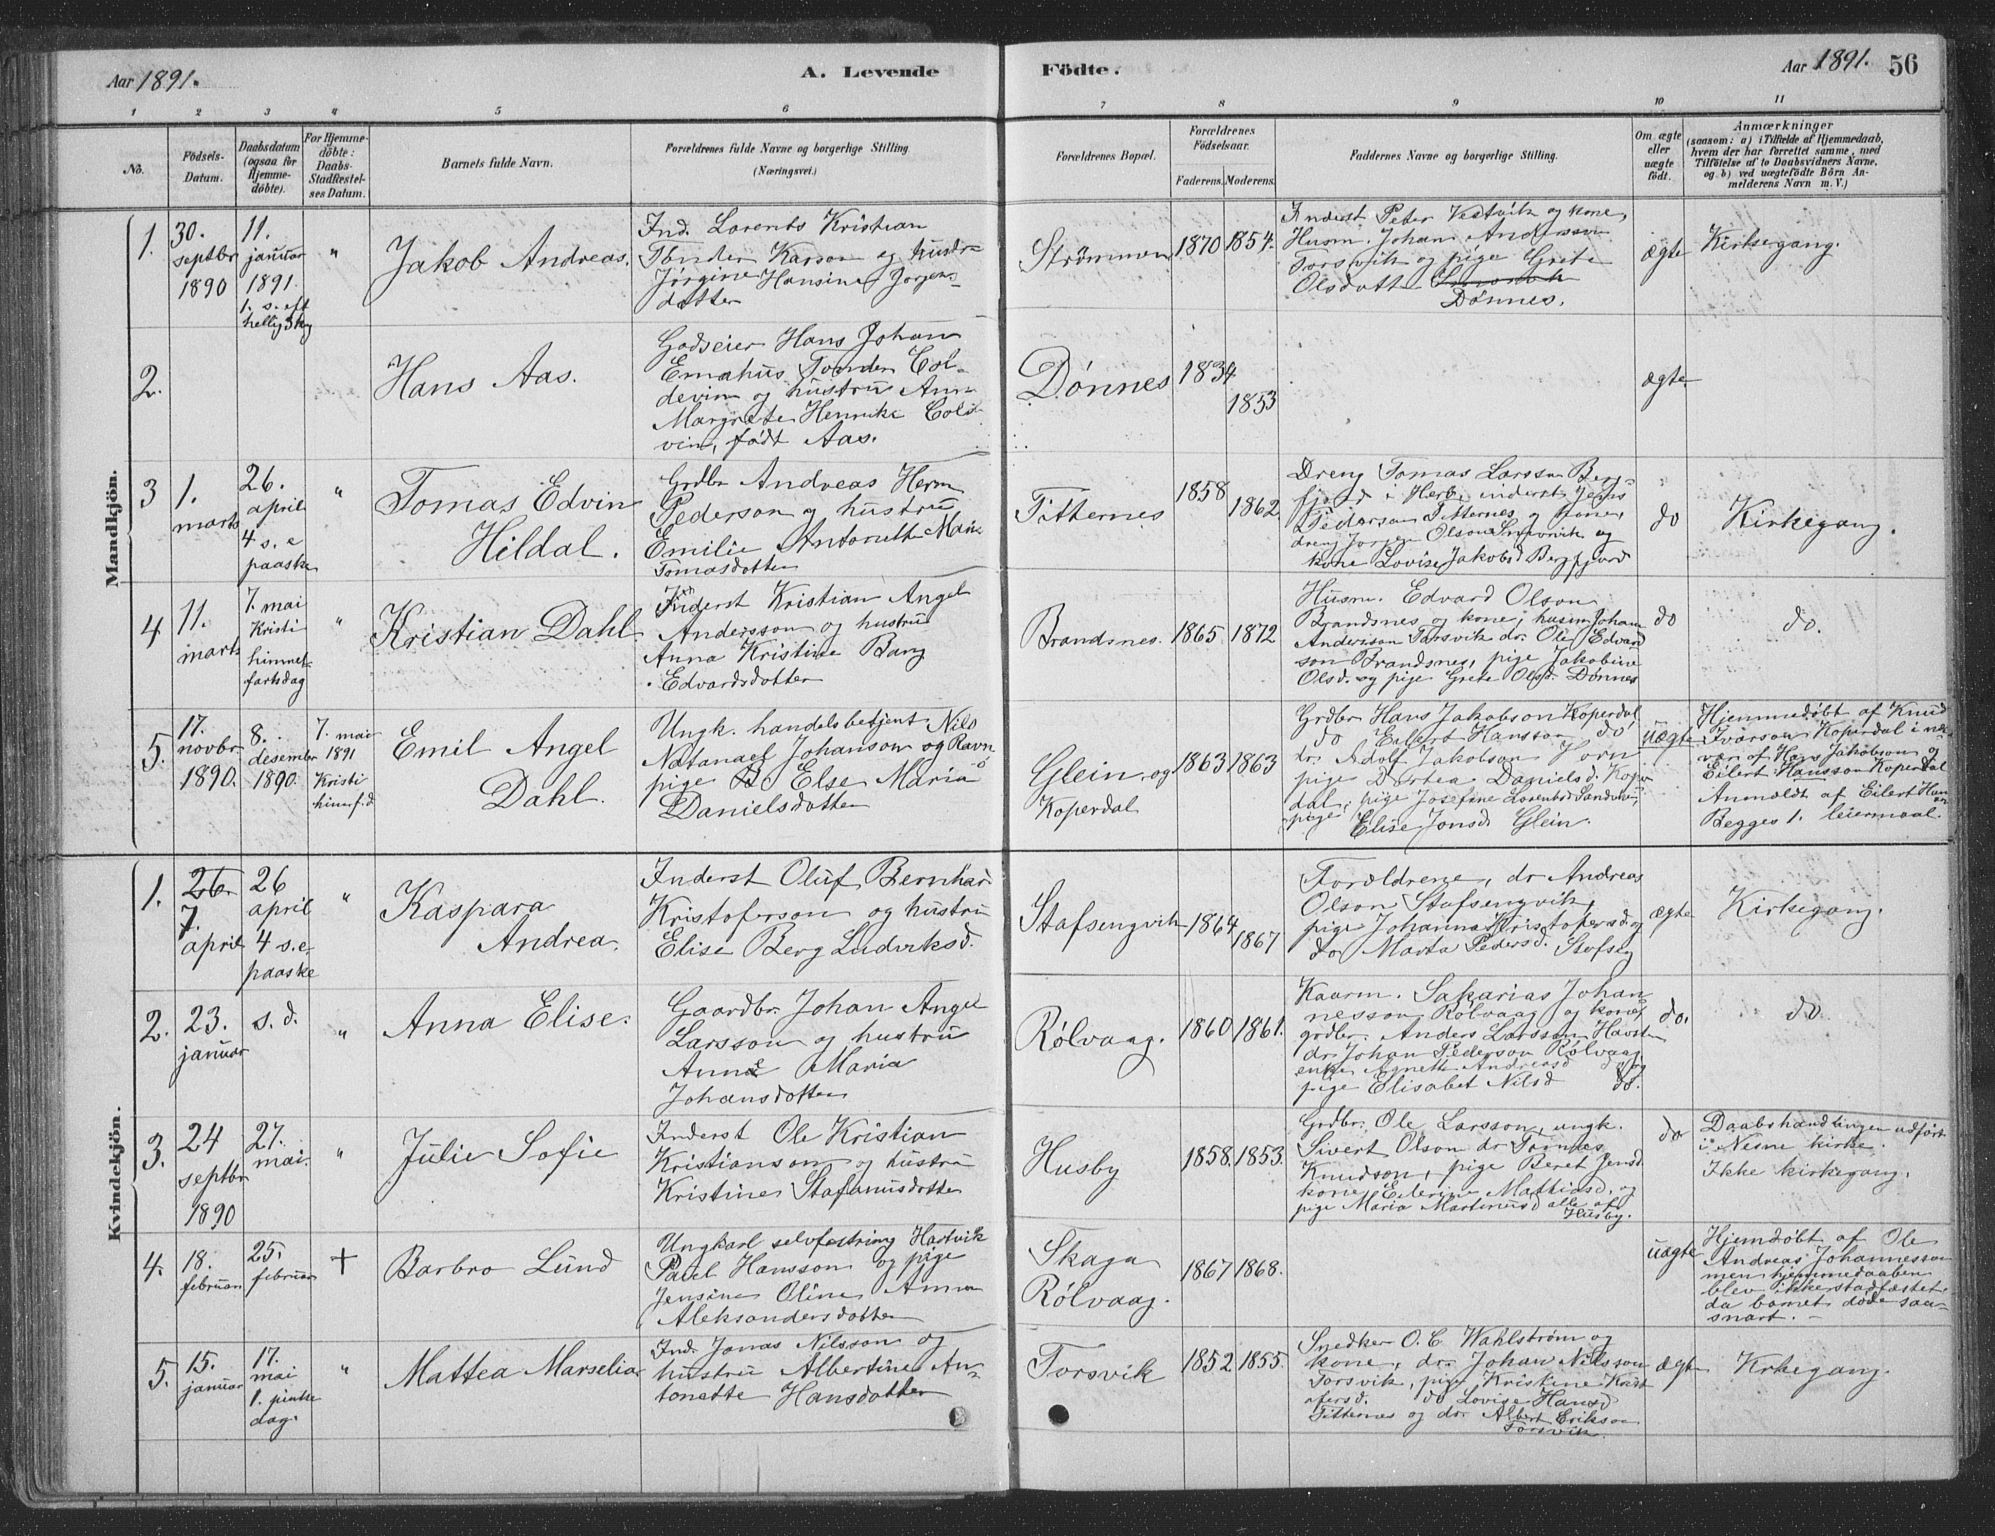 Aar 1891.
A. Levende Födte.
Aar 1891. 56
1 2 3 4 5 6 7 8 9 10 11
No.
Födsels-
Datum.
Daabsdatum
(ogsaa for
Hjemme-
döbte).
For Hjemme-
döbte:
Daabs-
Stadfæstel-
ses Datum.
Barnets fulde Navn.
Forældrenes fulde Navne og borgerlige Stilling
(Næringsvei.)
Forældrenes Bopæl.
Forældrenes
Födselsaar.
Faderens. Moderens.
Faddernes Navne og borgerlige Stilling.
Om ægte
eller
uægte
födt.
Anmærkninger
(saasom: a) i Tilfælde af Hjemmedaab,
hvem der har forrettet samme, med
Tilföielse af to Daabsvidners Navne,
og b) ved uægtefödte Börn An-
melderens Navn m. V.)
Mandkjön.
1.
30.
septbr
1890
11.
januar
1891.
1. s. eft
hellig 3 kg
"
Jakob Andreas.
Ind. Lorents Kristian
Tønder Karson og hustru
Jørgine Hansine Jørgens-
datter
Strømmen
1870 1854.
Inderst Peter og kone,
Husm. Johan Andersson
Torsvik og pige Grete
Olsdatter
Dönnes.
ægte
Kirkegang.
2.
Hans Aas.
Godseier Hans Johan
Emahus Tønder Col-
devin og hustru Ann
Margrete Henrike Colde-
vin, født Aas.
Dönnes
1834
1853
ægte
3
1.
marts
26.
april
4 s. e
paaske
"
Tomas Edvin
Hildal.
Grdbr Andreas Herm
Pederson og hustru
Emilie Antonette Marie
Tomasdotter
Titternes
1858
1862
Dreng Tomas Larsson Berg-
fjord i Herö, inderst Jens
Pederson Titternes og kone,
dreng Jørgen Olson og
kone Lovise Jakobsd Bergfjord
do
Kirkegang.
4
11.
marts
7. mai
Kristi
himmel-
fartsdag
"
Kristian Dahl.
Inderst Kristian Angel
Andersson og hustru
Anna Kristine Bang
Edvardsdotter
Brandsnes.
1865 1872
Husm. Edvard Olson
Brandsnes og kone, husm Johan
Anderson Torsvik dr. Ole Edvard
son Brandsnes, pige Jakobine
Olsd. og pige Grete Olsd. Dönnes
do
do.
5.
17.
novbr
1890.
8.
desember
1890.
7. mai
1891
Kristi
himf.d.
Emil Angel
Dahl.
Ungk. handelsbetjent Nils
Natanael Johanson og Ravn
pige Else Maria
Danielsdotter
Glein og
Koperdal
1863 1863
Grdbr Hans Jakobson Koperdal,
do Eilert Hansson do
dr. Adolf Jakobson Horn
pige Dortea Danielsd. Koper
dal, pige Josefine Lorentsd Sandvik,
pige Elise Jonsd Glein.
uægte
Hjemmedøbt af Knud
Ivarson Koperdal i næ-
vær. af Hans Jakobson og
Eilert Hansson Koperdal
Anmeldt af Eilert Han
Begges 1. leiermaal.
Kvindekjön.
1.
26.
7.
april
26
april
4 s.e.
paaske
"
Kaspara
Andrea.
Inderst Oluf Bernhar
Kristoferson og hustru
Elise Berg Ludviksd.
Stafsengvik
1864
1867
Forældrene, dr Andreas
Olson Stafsengvik,
pige Johanna Kristofersd. og
do Marta Pedersd. Stofseg
ægte
Kirkegang.
2.
23.
januar
s. d.
"
Anna Elise.
Gaardbr. Johan Angel
Larsson og hustru
Anne Maria
Johansdotter
Rölvaag.
1860 1861.
Kaarm. Sakarias Johan
nesson Rölvaag og kone
grdbr. Anders Larsson Havst
dr. Johan Pederson Rölvaag
enke Agnette Andreasd do og
pige Elisabet Nilsd do.
do.
do
3.
24
septbr
1890
27.
mai.
"
Julie Sofie
Inderst Ole Kristian
Kristianson og hustru
Kristine Stafanusdotter
Husby
1858. 1853.
Grdbr. Ole Larsson, ungk.
Sivert Olson dr Tomas
Knudson, pige Beret Jensd
kone Ederine Mathiasd, og
pige Maria Martinusd alle af
Husby.
do
Daabshandlingen udført
i Nesne kirke.
Ikke kirkegang.
4.
18.
februar
25.
februar
+
Barbro Lund
Ungkarl selvfostring Hartvik
Paul Hansson og pige
Jensine Oline Anna
Aleksandersdotter
Skaga
Rölvaag.
1867 1868.
uægte
Hjemdøbt af Ole
Andreas Johannesson
men hjemmedaaben
blev ikke stadfæstet
da barnet døde saa-
snart.
5.
15.
januar
17.
mai
1. pintse
dag.
"
Mattea Marselia
Ind. Jonas Nilsson og
hustru Albertine An-
tonette Hansdotter
Torsvik
1852 1855.
Snedker O. C. Wahlstrøm og
kone, dr. Johan Nilsson
Torsvik, pige Kristine Krist
ofersd. do Lovise Hansd
Titternes og dr. Albert Erikson
Torsvik.
ægte
Kirkegang.